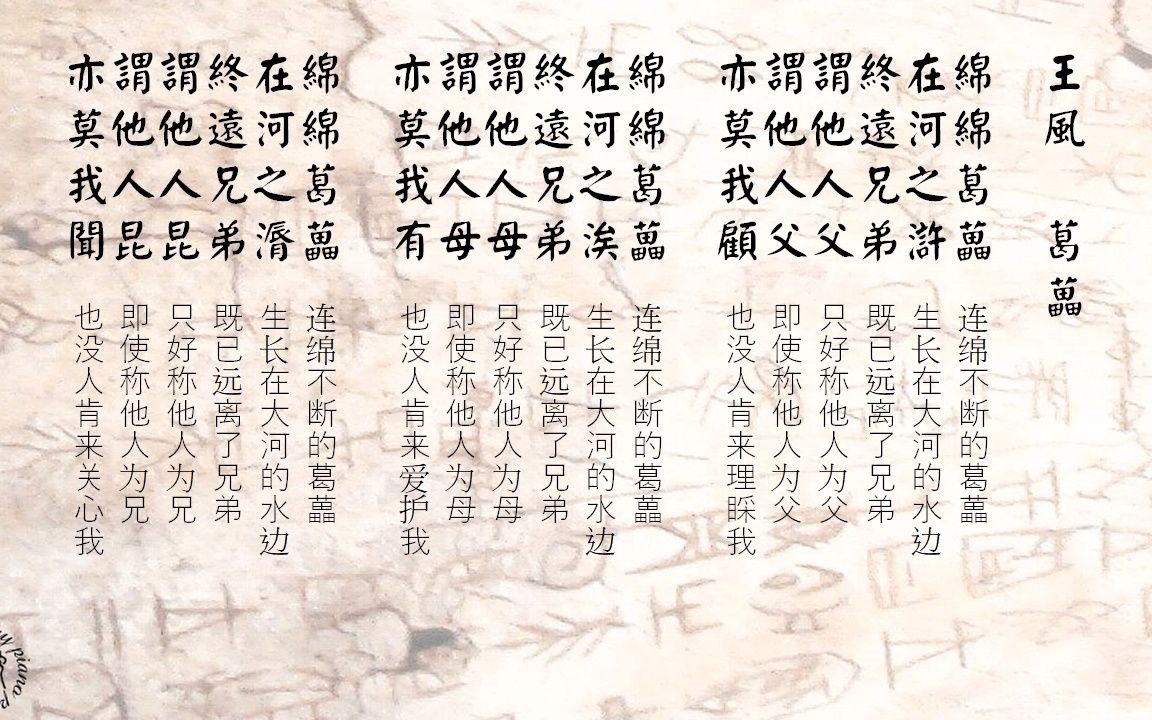 王風 葛藟
綿綿葛藟
在河之滸
終遠兄弟
謂他人父
謂他人父
亦莫我顧
连绵不断的葛藟
生长在大河的水边
既已远离了兄弟
只好称他人为父
即使称他人为父
也没人肯来理睬我
綿綿葛藟
在河之涘
終遠兄弟
謂他人母
謂他人母
亦莫我有
连绵不断的葛藟
生长在大河的水边
既已远离了兄弟
只好称他人为母
即使称他人为母
也没人肯来爱护我
綿綿葛藟
在河之漘
終遠兄弟
謂他人昆
謂他人昆
亦莫我聞
连绵不断的葛藟
生长在大河的水边
既已远离了兄弟
只好称他人为兄
即使称他人为兄
也没人肯来关心我
piano